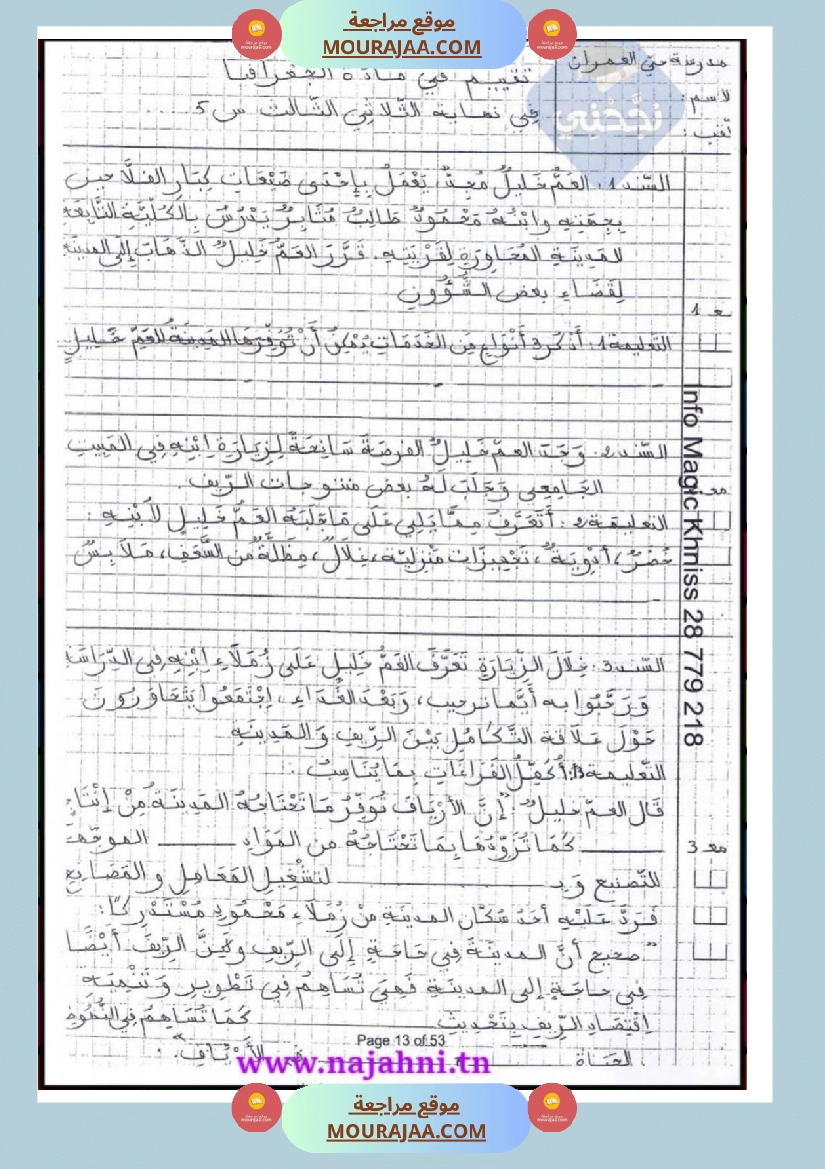 موقع مراجعة
MOURAJAA.COM
مدرسة حي العمران
تقييم في مادة الجغرافيا
الاسم :
في نهاية الثلاثي الثالث س 5
اللقب :
نجّحني
السّند 1 : العَمُّ خَلِيلٌ مُجِدٌّ، يَعْمَلُ بِإِحْدَى ضَيْعَاتِ كِبَارِ الفلَّاحينَ
بِجِهَتِهِ وابْنُهُ مَحْمُودٌ طَالِبٌ مُثَابِرٌ يَدْرُسُ بِالكُلِّيَّةِ التَّابِعَةِ
للمَدِينَةِ المُجَاوِرَةِ لِقَرْيَتِهِ. قَرَّرَ العَمُّ خَلِيلٌ الذَّهَابَ إِلَى المدينَةِ
لِقَضَاءِ بعضِ الشُّؤُونِ
مع 1
التعليمة 1 : أَذْكُرُ 3 أَنْوَاعٍ مِنَ الخَدَمَاتِ يُمْكِنُ أَنْ تُوَفِّرَهَا المَدِينَةُ للعَمِّ خَلِيلٍ
السّند 2 : وَجَدَ العَمُّ خَلِيلٌ الفرصَةَ سَانِحَةً لِزِيَارَةِ اِبْنِهِ فِي المَبِيتِ
الجَامِعِي وَجَلَبَ لَهُ بعضَ منتوجاتِ الرّيفِ.
مع
التعليمة 2 : أَتَعَرَّفُ مِمَّا يَلِي عَلَى مَا جَلَبَهُ العَمُّ خَلِيلٌ لابْنِهِ :
خُضَرٌ، أَدْوِيَةٌ، تَجْهِيزَات مَنْزِليّة، غِلَالٌ، مِظَلَّةٌ من السَّعَفِ، مَلَابِسٌ
السّند 3 : خِلَالَ الزِّيَارَةِ تَعَرَّفَ العَمُّ خَلِيل عَلَى زُمَلَاءِ اِبْنِهِ فِي الدِّرَاسَةِ
وَرَحَّبُوا به أَيَّمَا ترحيب، وَبَعْدَ الغَدَاءِ، اِجْتَمَعُوا يَتَحَاوَرُونَ
حَوْلَ عَلَاقةِ التَّكَامُلِ بَيْنَ الرِّيفِ وَالمَدِينَةِ
التعليمة 1.3 : أُكَمِّلُ الفَرَاغَاتِ بِمَا يُنَاسِبُ :
قَالَ العمّ خليلٌ : "إِنَّ الأَرْيَافَ تُوَفِّرُ مَا تَحْتَاجُهُ المَدِينَةُ مِنْ إِنْتَاجٍ
مع 3
كَمَا تُزَوِّدُهَا بِمَا تَحْتَاجُهُ من المَوَادِ الموجّهة
للتّصنيعِ وَبِـ لتَشْغِيلِ المَعَامِلِ والمَصَانِعِ
فَرَدَّ عَلَيْهِ أحَدُ سُكَّانِ المدينةِ مِنْ زُمَلَاءِ مَحْمُودٍ مُسْتَدْرِكًا :
"صحيح أنَّ المدينَةَ فِي حَاجَةٍ إِلَى الرِّيفِ ولَكِنَّ الرِّيفَ أَيْضًا
فِي حاجَةٍ إلى المدينَةِ فَهِيَ تُسَاهِمُ فِي تَطْوِيرِ وَتَنْمِيَةِ
اِقْتِصَادِ الرِّيفِ بِتَحْدِيثِ كَمَا تُسَاهِمُ فِي النُّهُوضِ
الحَيَاةِ فِي الأَرْيَافِ".
Page 13 of 53
www.najahni.tn
Info Magic Khniss 28 779 218
موقع مراجعة
MOURAJAA.COM